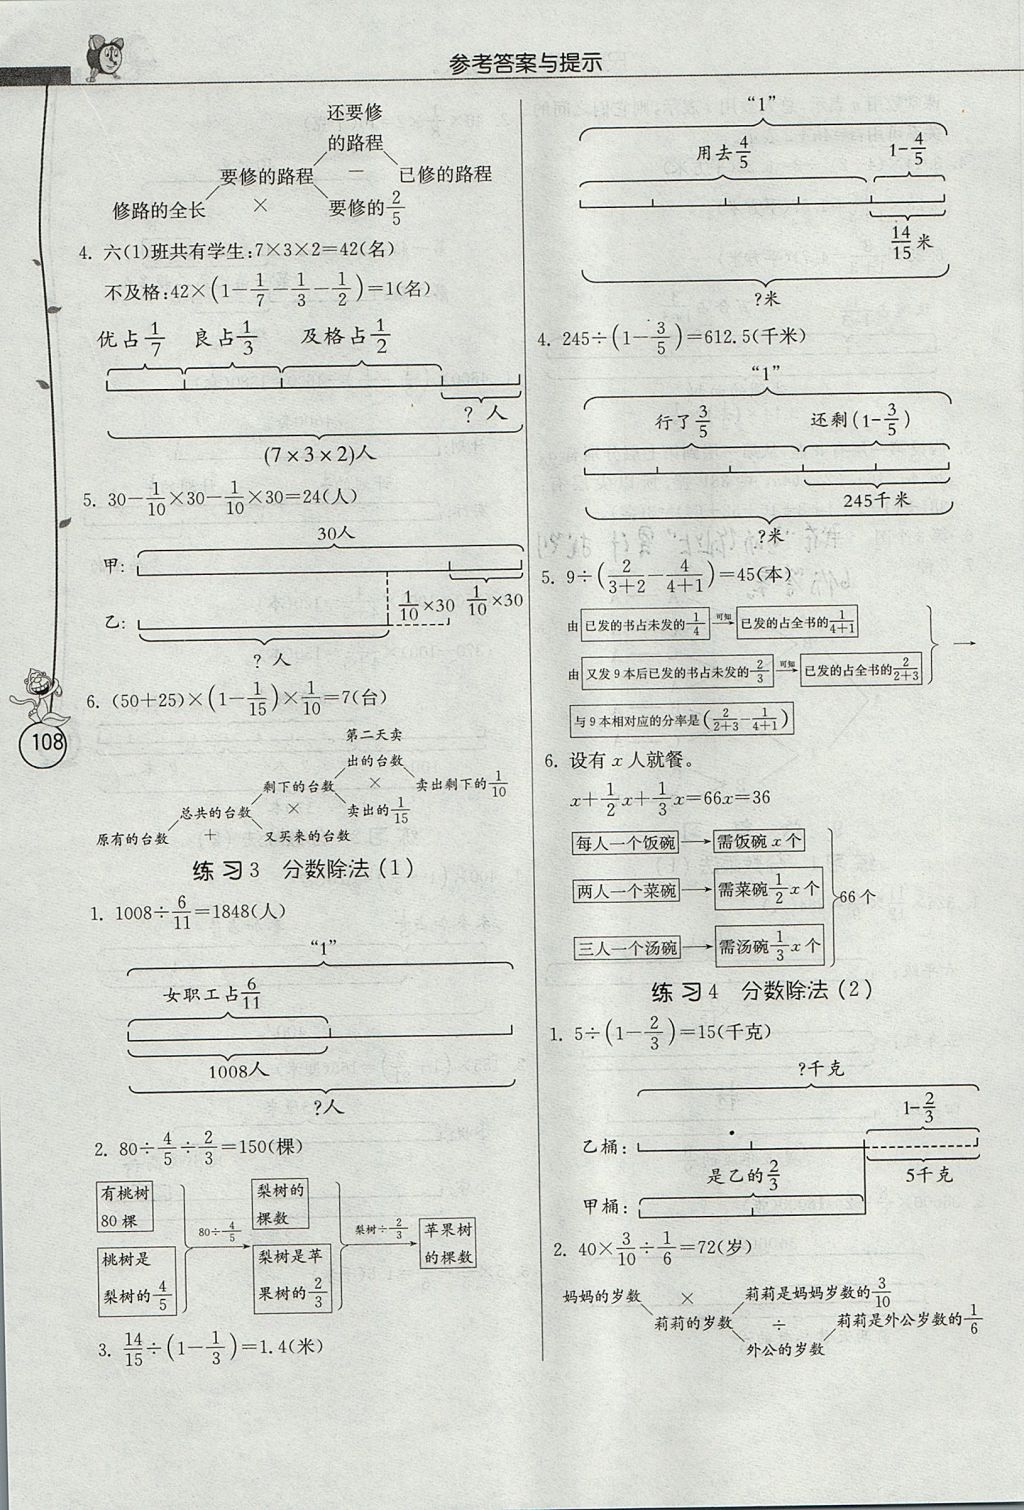 参考答案与提示
还要修
的路程
要修的路程 － 已修的路程
修路的全长 × 要修的2/5
4. 六(1)班共有学生:7×3×2=42(名)
不及格:42×(1-1/7-1/3-1/2)=1(名)
优占1/7 良占1/3 及格占1/2
? 人
(7×3×2)人
5. 30-1/10×30-1/10×30=24(人)
30人
甲:
1/10×30 1/10×30
乙:
? 人
6. (50+25)×(1-1/15)×1/10=7(台)
第二天卖
出的台数
剩下的台数 × 卖出剩下的1/10
总共的台数 × 卖出的1/15
原有的台数 + 又买来的台数
练习3 分数除法(1)
1. 1008÷6/11=1848(人)
“1”
女职工占6/11
1008人
?人
2. 80÷4/5÷2/3=150(棵)
有桃树
80棵
桃树是
梨树的4/5
80÷4/5
梨树的
棵数
梨树是苹
果树的2/3
梨树÷2/3
苹果树
的棵数
3. 14/15÷(1-1/3)=1.4(米)
108
“1”
用去4/5 1-4/5
14/15米
?米
4. 245÷(1-3/5)=612.5(千米)
“1”
行了3/5 还剩(1-3/5)
245千米
?米
5. 9÷(2/(3+2)-4/(4+1))=45(本)
由 已发的书占未发的1/4 可知 已发的占全书的1/(4+1)
由 又发9本后已发的书占未发的2/3 可知 已发的占全书的2/(2+3)
与9本相对应的分率是(2/(2+3)-1/(4+1))
6. 设有x人就餐。
x+1/2x+1/3x=66x=36
每人一个饭碗 → 需饭碗x个
两人一个菜碗 → 需菜碗1/2x个 66个
三人一个汤碗 → 需汤碗1/3x个
练习4 分数除法(2)
1. 5÷(1-2/3)=15(千克)
?千克
1-2/3
乙桶:
是乙的2/3 5千克
甲桶:
2. 40×3/10÷1/6=72(岁)
妈妈的岁数 × 莉莉是妈妈岁数的3/10
莉莉的岁数 ÷ 莉莉是外公岁数的1/6
外公的岁数